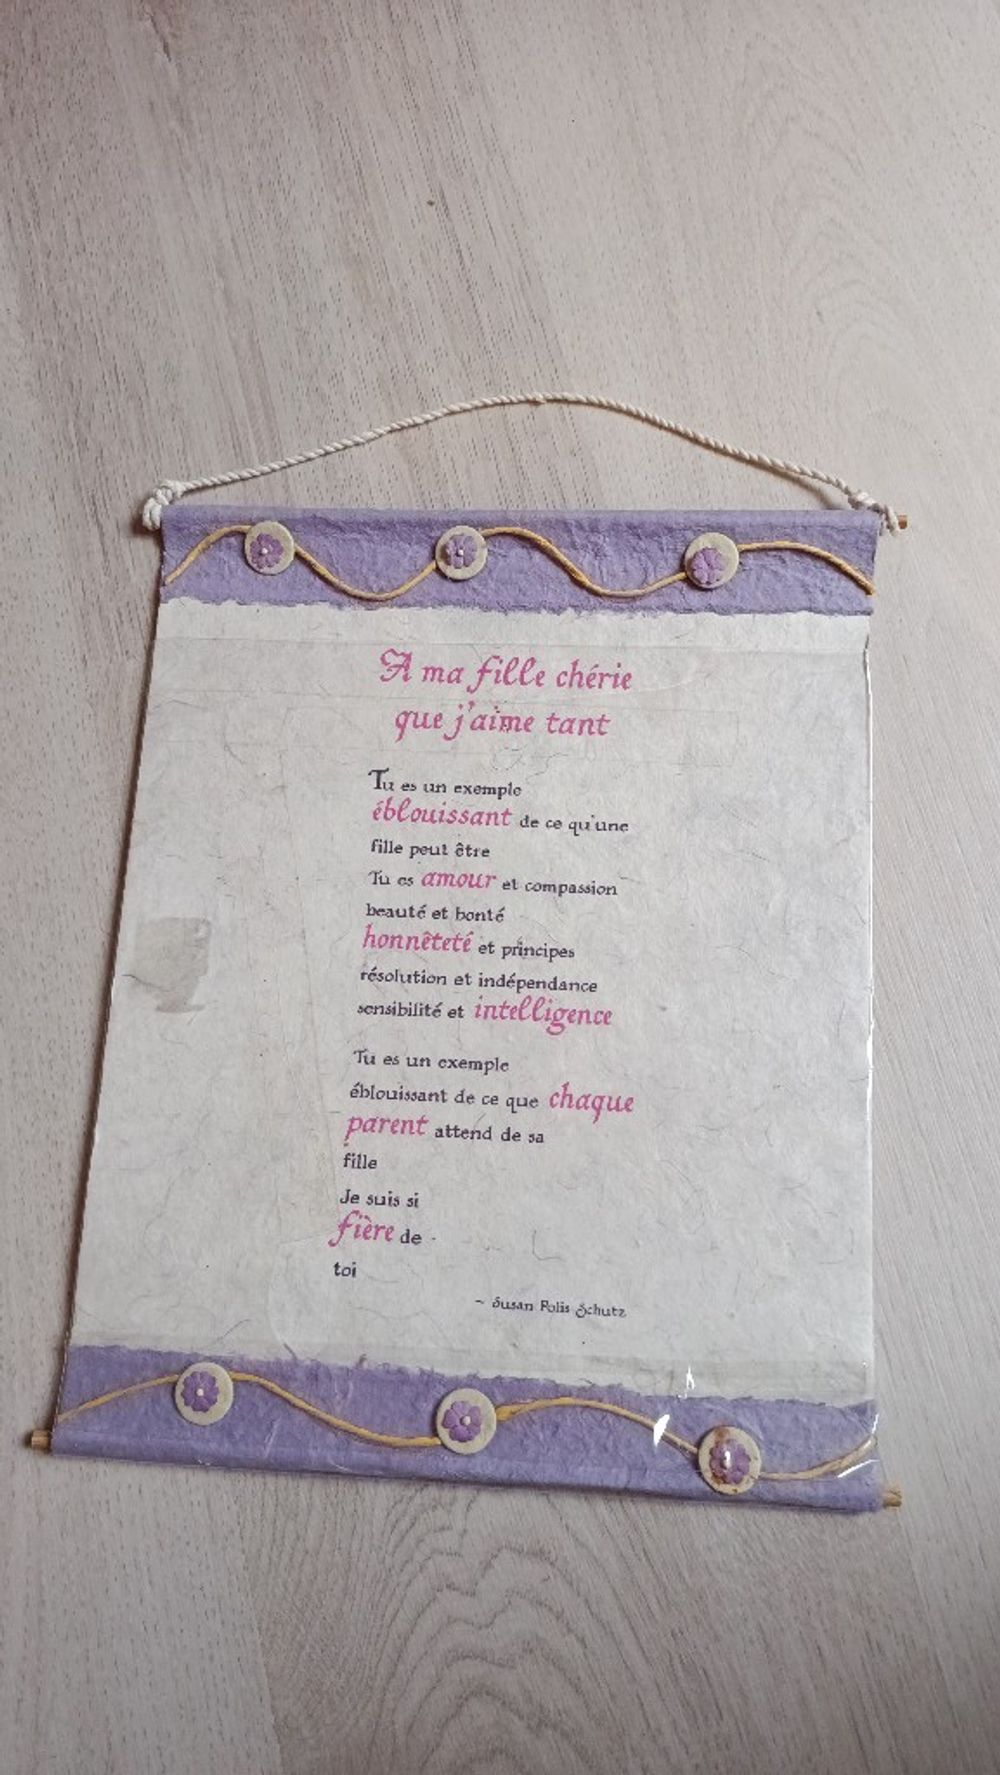 A ma fille chérie
que j'aime tant
Tu es un exemple
éblouissant de ce qu'une
fille peut être
Tu es amour et compassion
beauté et bonté
honnêteté et principes
résolution et indépendance
sensibilité et intelligence
Tu es un exemple
éblouissant de ce que chaque
parent attend de sa
fille
Je suis si
fière de
toi
~ Susan Polis Schutz